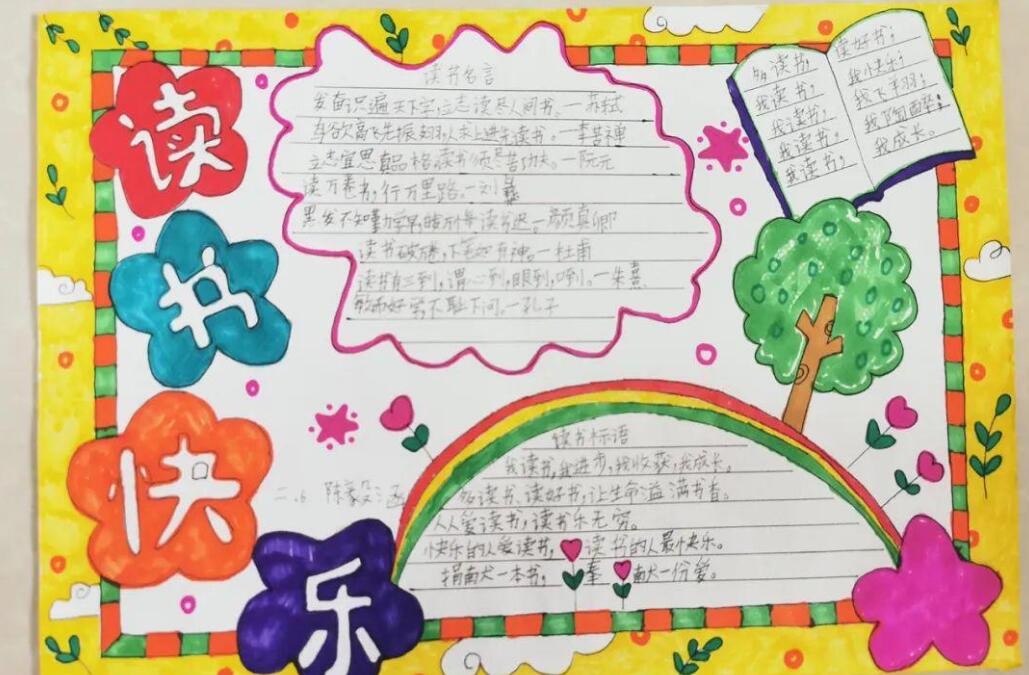 读
书
快
乐
读书名言
发奋识遍天下字,立志读尽人间书。—苏轼
鸟欲高飞先振翅,人求上进先读书。—李苦禅
立志宜思真品格,读书须尽苦功夫。—阮元
读万卷书,行万里路。—刘彝
黑发不知勤学早,白首方悔读书迟。—颜真卿
读书破万卷,下笔如有神。—杜甫
读书有三到,谓心到,眼到,口到。—朱熹
敏而好学,不耻下问。—孔子
多读书;
我读书;
我读书;
我读书;
我读书;
读好书;
我快乐;
我飞羽;
我陶醉;
我成长。
读书标语
我读书,我进步,我收获,我成长。
多读书、读好书,让生命溢满书香。
人人爱读书,读书乐无穷。
快乐的人爱读书,读书的人最快乐。
捐献一本书,奉献一份爱。
二.6 陈涵